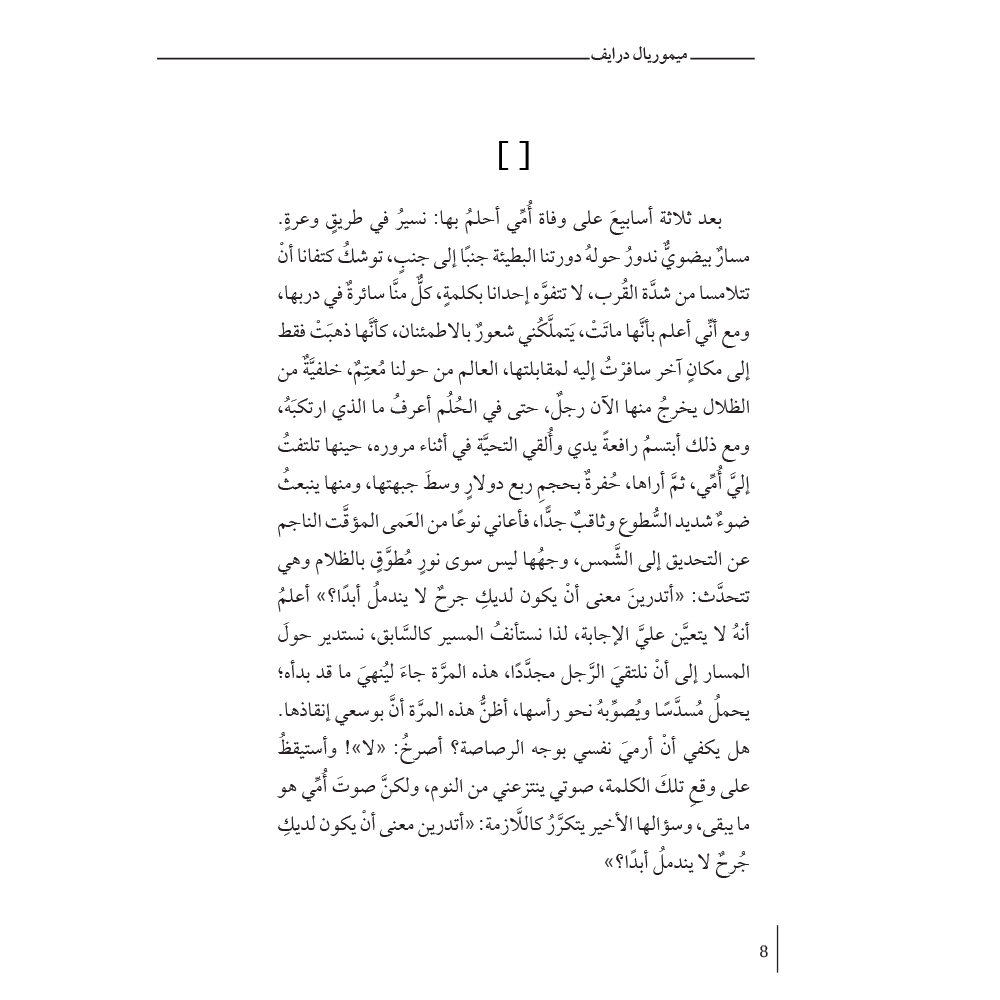 ميموريال درايف
[ ]
بعد ثلاثة أسابيعَ على وفاة أُمِّي أحلمُ بها: نسيرُ في طريقٍ وعرةٍ.
مسارٌ بيضويٌّ ندورُ حولهُ دورتنا البطيئة جنبًا إلى جنبٍ، توشكُ كتفانا أنْ
تتلامسا من شدَّة القُرب، لا تتفوَّه إحدانا بكلمةٍ، كلٌّ منَّا سائرةٌ في دربها،
ومع أنِّي أعلم بأنَّها ماتَتْ، يَتملَّكُني شعورٌ بالاطمئنان، كأنَّها ذهبَتْ فقط
إلى مكانٍ آخر سافرْتُ إليه لمقابلتها، العالم من حولنا مُعتِمٌ، خلفيَّةٌ من
الظلال يخرجُ منها الآن رجلٌ، حتى في الحُلُم أعرفُ ما الذي ارتكبَهُ،
ومع ذلك أبتسمُ رافعةً يدي وأُلقي التحيَّة في أثناء مروره، حينها تلتفتُ
إليَّ أُمِّي، ثمَّ أراها، حُفرةٌ بحجمِ ربع دولارٍ وسطَ جبهتها، ومنها ينبعثُ
ضوءٌ شديد السُّطوع وثاقبٌ جدًّا، فأعاني نوعًا من العَمى المؤقَّت الناجم
عن التحديق إلى الشَّمس، وجهُها ليس سوى نورٍ مُطوَّقٍ بالظلام وهي
تتحدَّث: «أتدرينَ معنى أنْ يكون لديكِ جرحٌ لا يندملُ أبدًا؟» أعلمُ
أنهُ لا يتعيَّن عليَّ الإجابة، لذا نستأنفُ المسير كالسَّابق، نستدير حولَ
المسار إلى أنْ نلتقيَ الرَّجل مجدَّدًا، هذه المرَّة جاءَ ليُنهيَ ما قد بدأه؛
يحملُ مُسدَّسًا ويُصوِّبهُ نحو رأسها، أظنُّ هذه المرَّة أنَّ بوسعي إنقاذها.
هل يكفي أنْ أرميَ نفسي بوجه الرصاصة؟ أصرخُ: «لا»! وأستيقظُ
على وقعِ تلكَ الكلمة، صوتي ينتزعني من النوم، ولكنَّ صوتَ أُمِّي هو
ما يبقى، وسؤالها الأخير يتكرَّرُ كاللَّازمة: «أتدرين معنى أنْ يكون لديكِ
جُرحٌ لا يندملُ أبدًا؟»
8